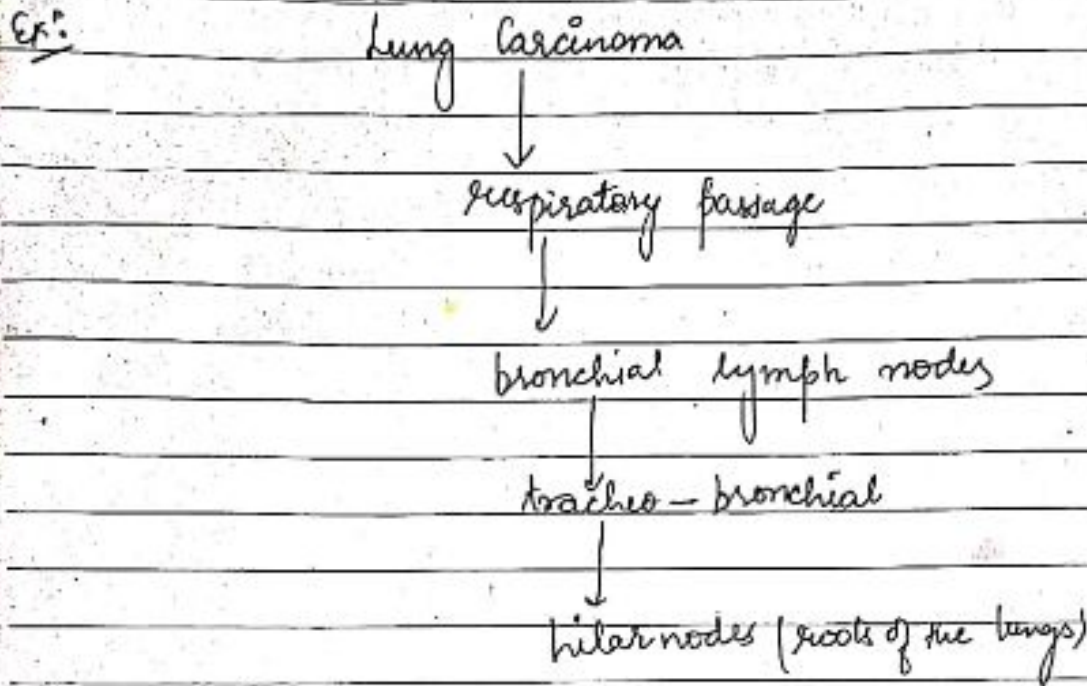 Ex:
Lung Carcinoma
↓
respiratory passage
↓
bronchial lymph nodes
↓
tracheo - bronchial
↓
hilar nodes (roots of the lungs)